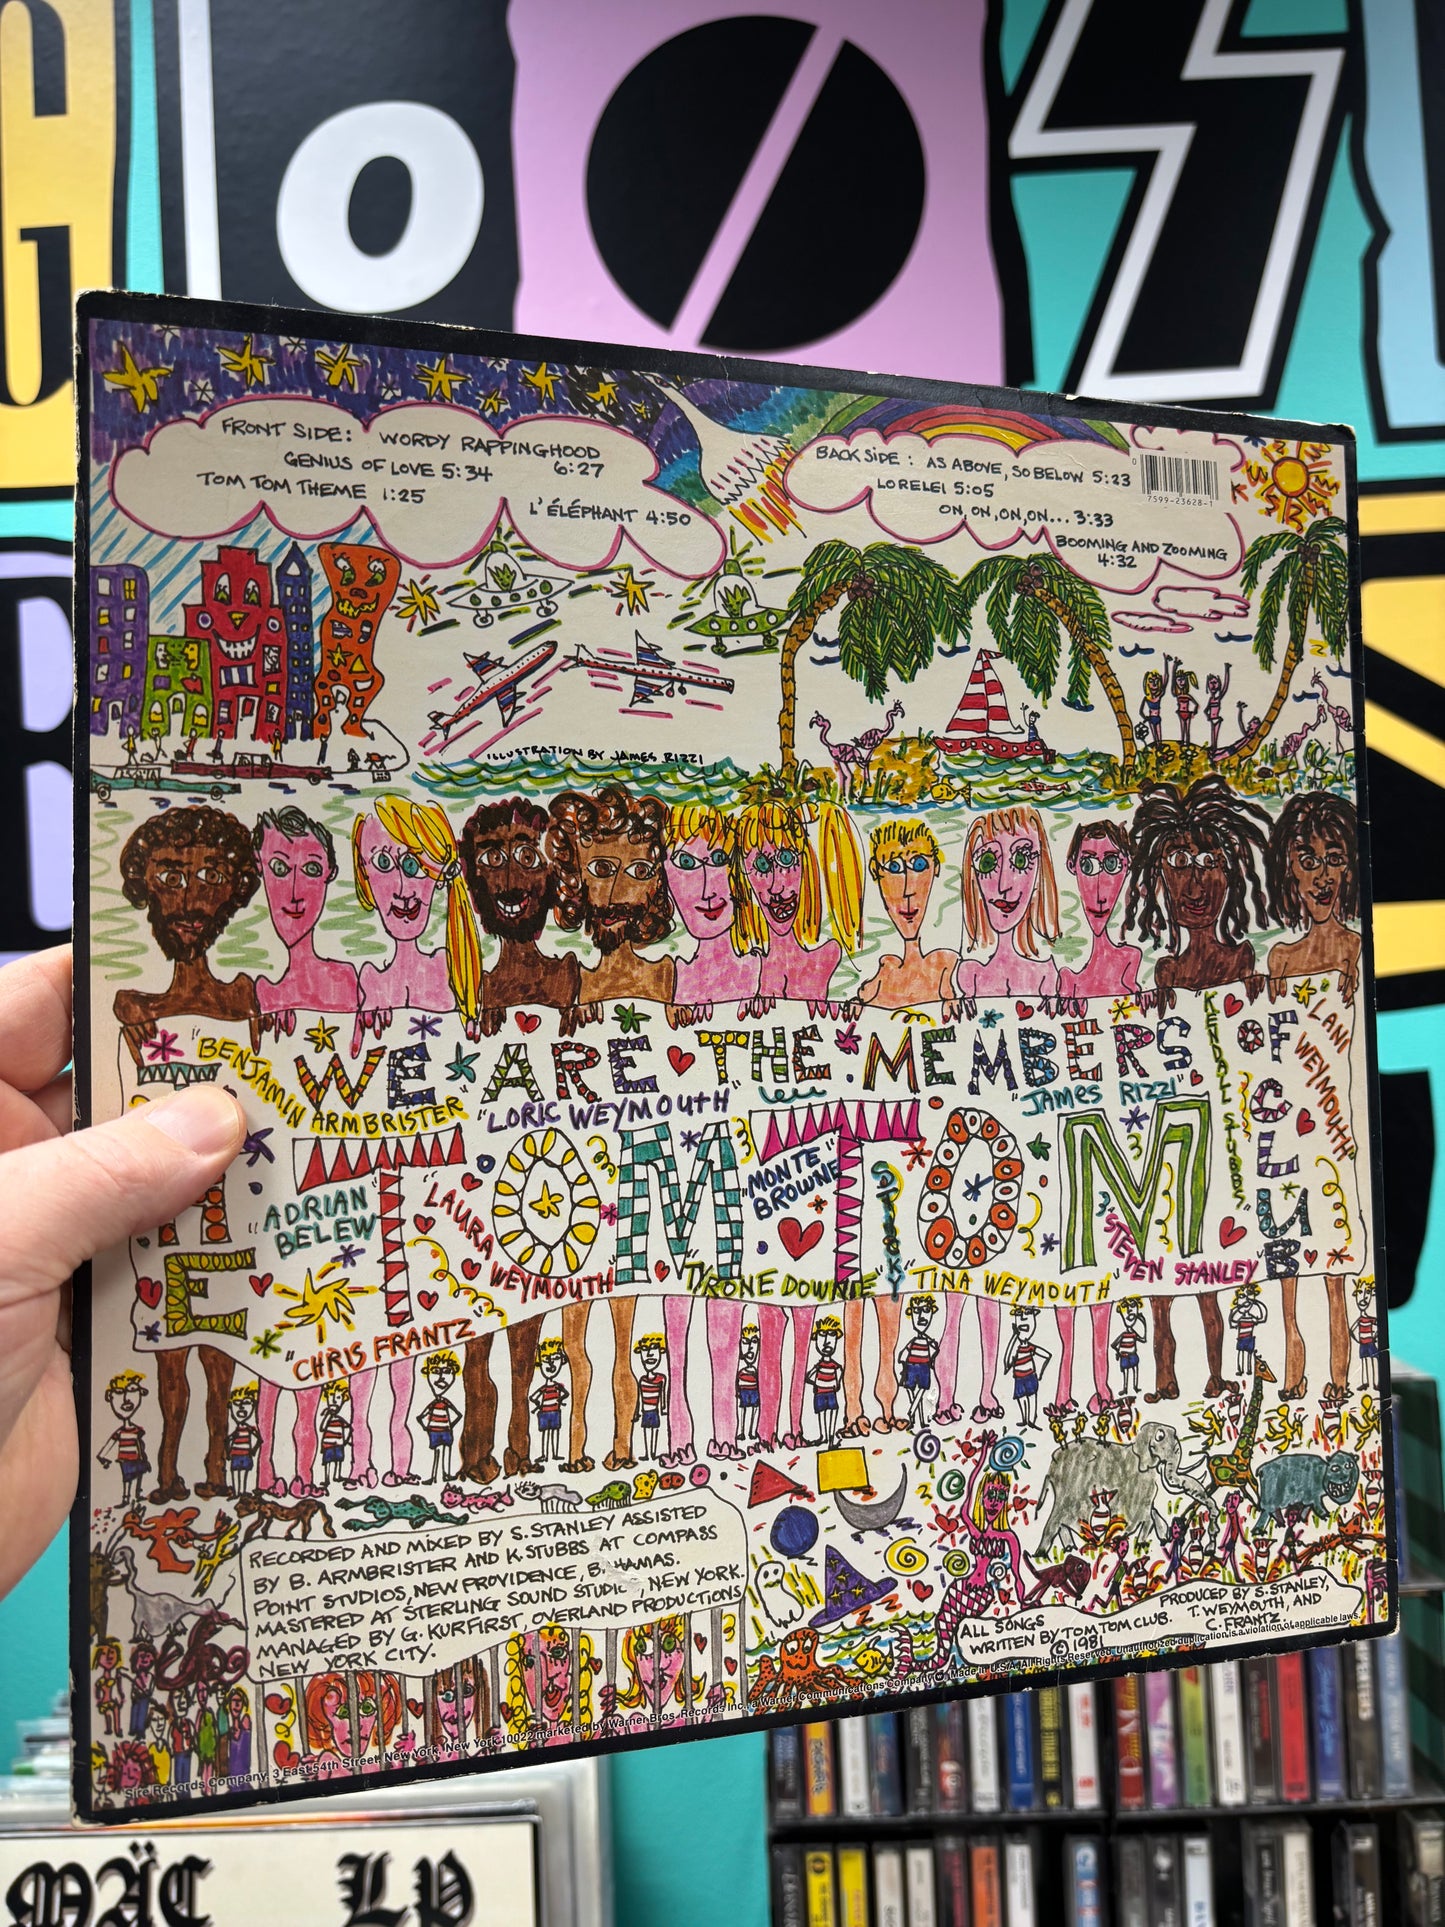 FRONT SIDE: WORDY RAPPINGHOOD
6:27
GENIUS OF LOVE 5:34
TOM TOM THEME 1:25
L'ÉLÉPHANT 4:50
BACK SIDE: AS ABOVE, SO BELOW 5:23
LORELEI 5:05
ON, ON, ON, ON... 3:33
BOOMING AND ZOOMING
4:32
0
7599-23628-1
ILLUSTRATION BY JAMES RIZZI
WE ARE THE MEMBERS
OF
THE TOM TOM CLUB
"BENJAMIN ARMBRISTER"
"LORIC WEYMOUTH"
"JAMES RIZZI"
"KENDALL STUBBS"
"LANI WEYMOUTH"
"ADRIAN BELEW"
"LAURA WEYMOUTH"
"MONTE BROWNE"
"STICKY"
"TYRONE DOWNIE"
"TINA WEYMOUTH"
"STEVEN STANLEY"
"CHRIS FRANTZ"
RECORDED AND MIXED BY S. STANLEY ASSISTED
BY B. ARMBRISTER AND K. STUBBS AT COMPASS
POINT STUDIOS, NEW PROVIDENCE, B HAMAS.
MASTERED AT STERLING SOUND STUDIO, NEW YORK.
MANAGED BY G. KURFIRST, OVERLAND PRODUCTIONS
NEW YORK CITY.
ALL SONGS
WRITTEN BY TOM TOM CLUB.
© 1981
PRODUCED BY S. STANLEY,
T. WEYMOUTH, AND
C. FRANTZ.
Sire Records Company, 3 East 54th Street, New York, New York 10022 marketed by Warner Bros. Records Inc., a Warner Communications Company Made in U.S.A. All Rights Reserved. Unauthorized duplication is a violation of applicable laws.
MÄC LP